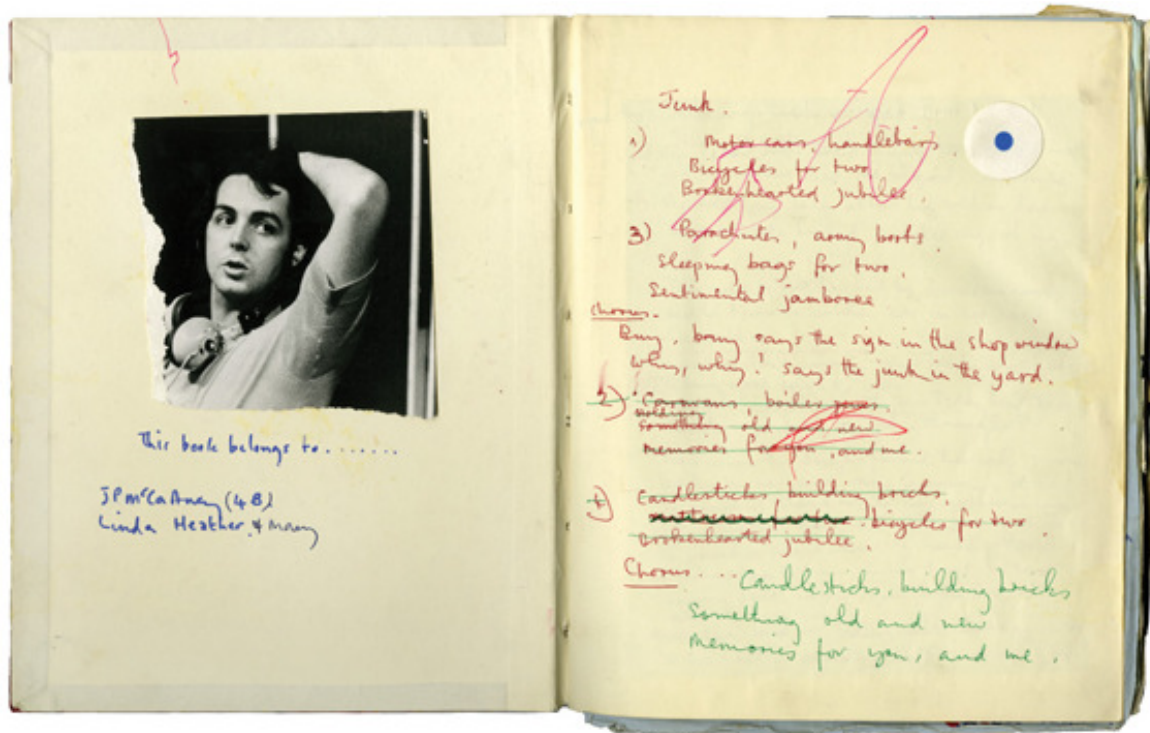 This book belongs to.......
JP McCartney (4B)
Linda Heather, & Mary
Junk.
1) Motor cars, handlebars.
Bicycles for two
Brokenhearted jubilee.
3) Parachutes, army boots.
Sleeping bags for two.
Sentimental jamboree
Chorus.
Buy, buy says the sign in the shop window
Why, why? says the junk in the yard.
2) Caravans, boiler
something old and new
memories for you, and me.
Candlesticks, building bricks,
bicycles for two.
Brokenhearted jubilee.
Chorus....
Candlesticks, building bricks
Something old and new
Memories for you, and me.